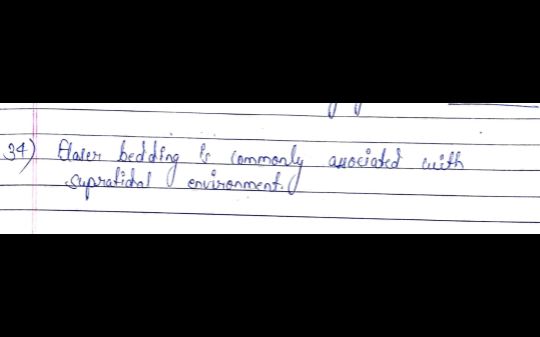 34) Flaser bedding is commonly associated with
supratidal environment.